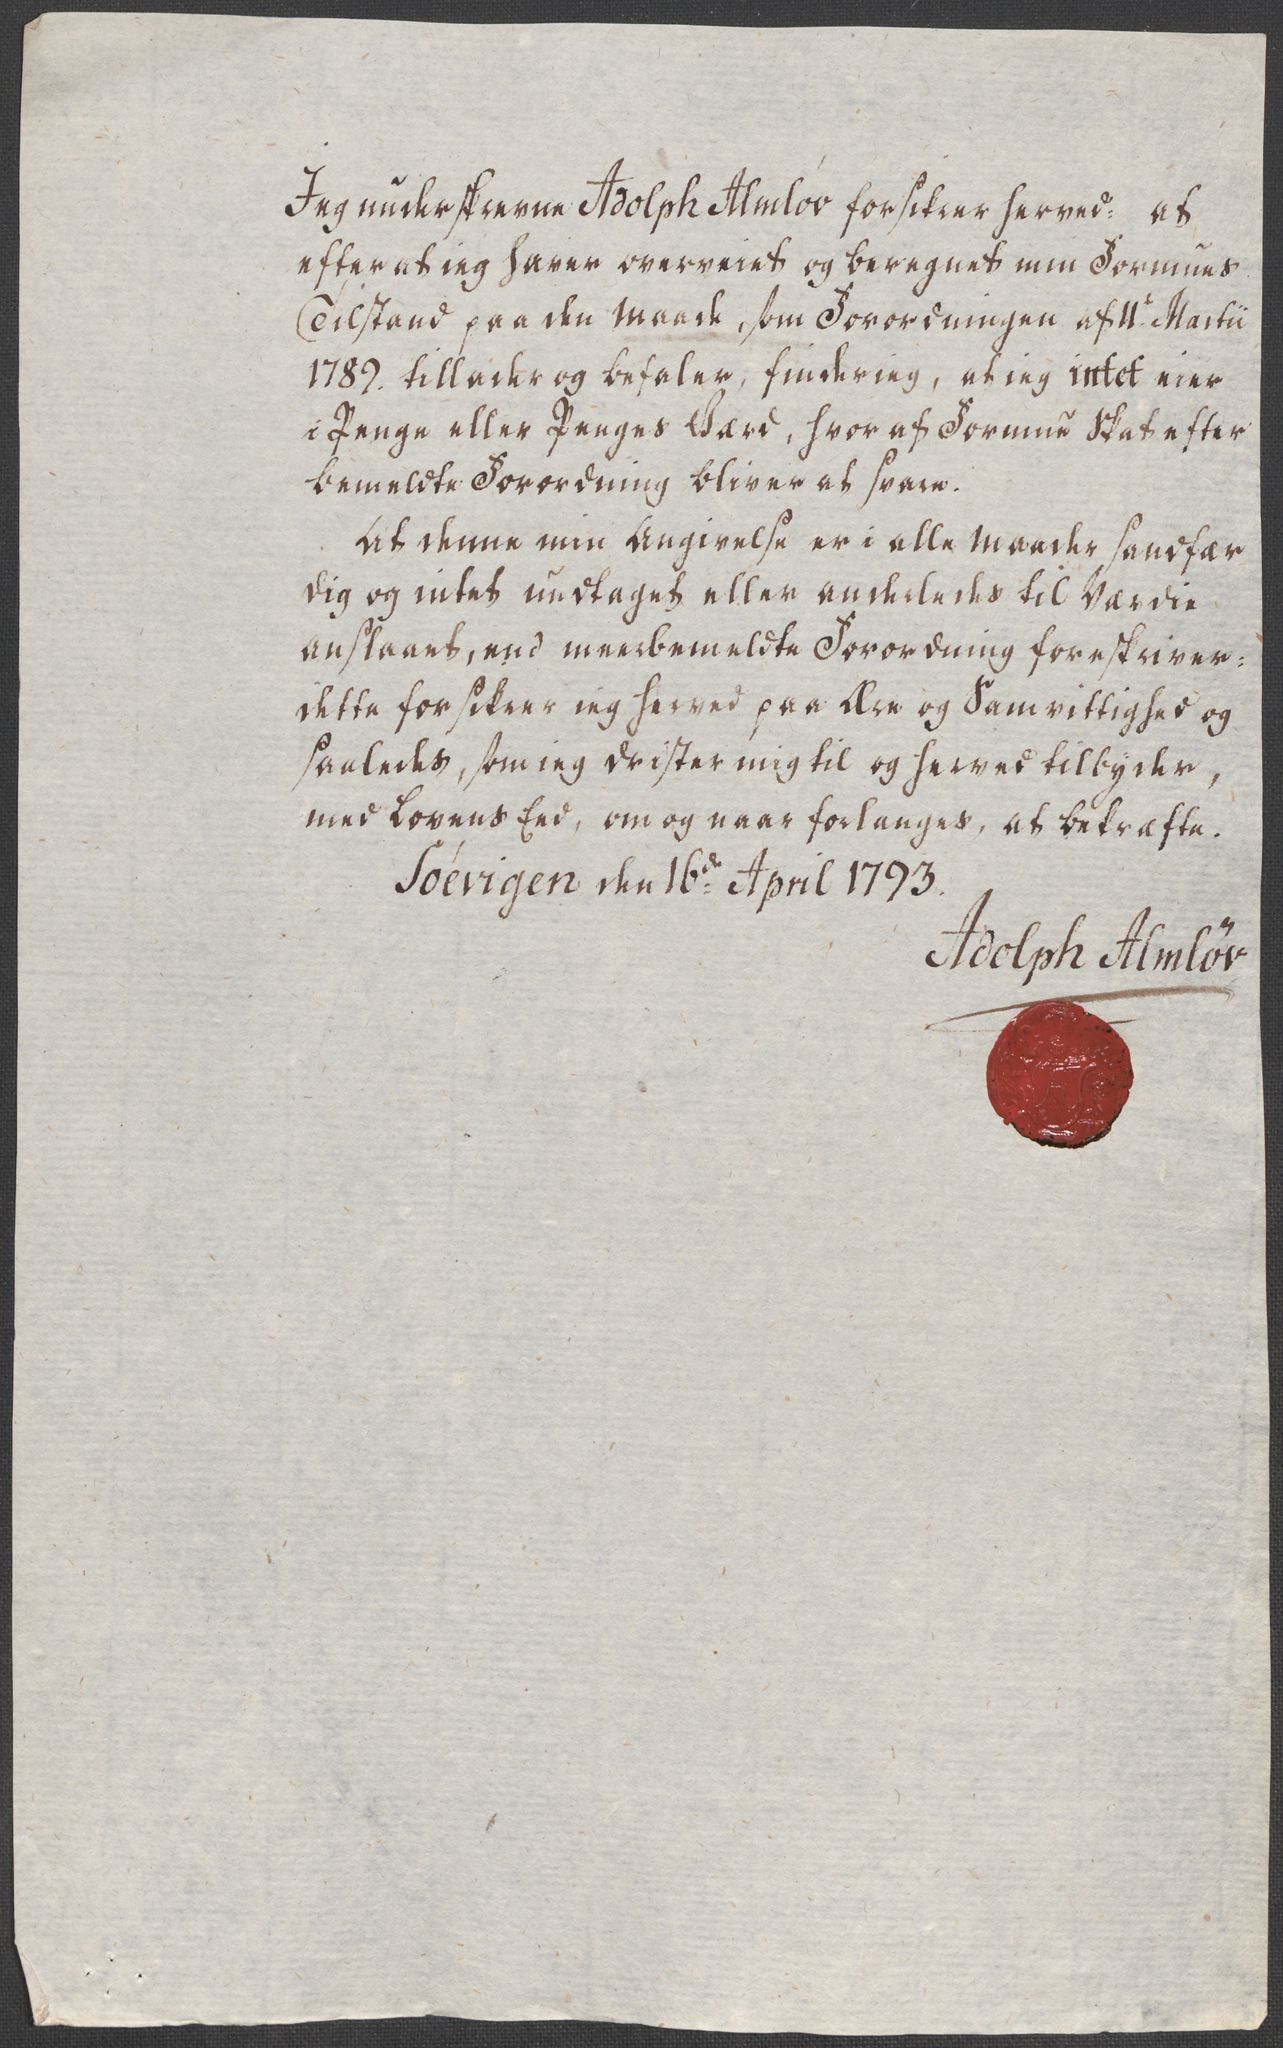 Jeg underskrevne Adolph Almløv forsikrer herved: at
efter at ieg haver overveiet og beregnet min Formues
Tilstand paa den Maade, som Forordningen af 11te Martii
1789. tillader og befaler, finder ieg, at ieg intet eier
i Penge eller Penges Værd, hvor af Formue Skat efter
bemeldte Forordning bliver at svare.
At denne min Angivelse er i alle Maader sandfær
dig og intet undtaget eller anderledes til Værdie
anslaaet, end meerbemeldte Forordning foreskriver:
dette forsikrer ieg herved paa Ære og Samvittighed og
saaledes, som ieg drister mig til og herved tilbyder,
med Lovens Eed, om og naar forlanges, at bekræfte.
Söevigen den 16de April 1793.
Adolph Almløv